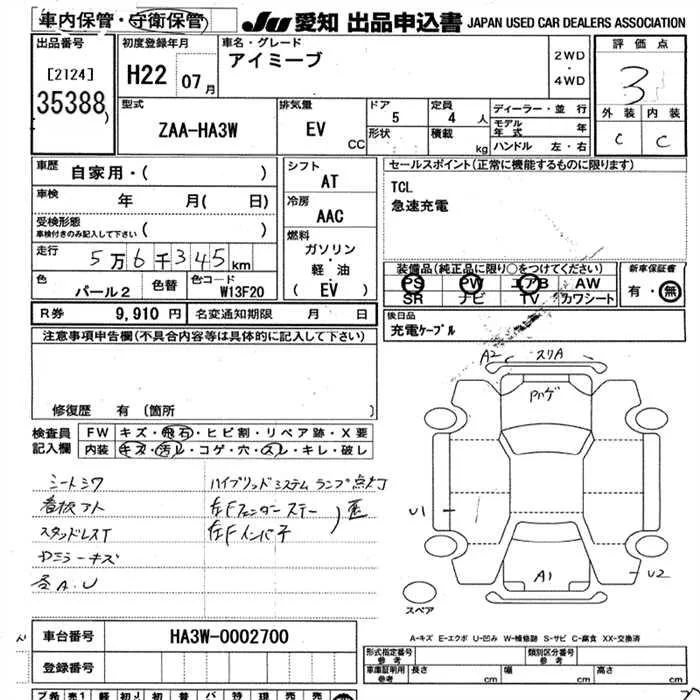 車内保管・守衛保管 JU 愛知 出品申込書 JAPAN USED CAR DEALERS ASSOCIATION
出品番号 初度登録年月 車名・グレード 評価点
[2124] H22 07月 アイミーブ 2WD・4WD 3
35388 型式 排気量 ドア 定員 ディーラー・並行 外装 内装
ZAA-HA3W EV CC 5 4人 モデル年式 年 C C
形状 積載 kg ハンドル 左・右
車歴 自家用・( ) シフト AT セールスポイント(正常に機能するものに限ります)
車検 年 月( 日) 冷房 AAC TCL
受検形態 車検付きのみ記入して下さい ( ) 急速充電
走行 5万6千345km 燃料 ガソリン・軽油 (EV)
色 パール2 色替 色コード W13F20
装備品(純正品に限り○をつけてください) 新車保証書
PS PW エアB AW 有・無
SR ナビ TV カワシート
R券 9,910円 名変通知期限 月 日 後日品
充電ケーブル
注意事項申告欄(不具合内容等は具体的に記入して下さい)
修復歴 有 (箇所 )
A2 スリA
Pハゲ
検査員記入欄 FW キズ・飛石・ヒビ割・リペア跡・X要
内装 キズ・汚レ・コゲ・穴・スレ・キレ・破レ
シートシワ ハイブリッドシステムランプ点灯
看板アト 左Fフェンダーステー
スタッドレスT 左Fインパネ
U1
A1
U2
スペア
車台番号 HA3W-0002700
登録番号
A-キズ E-エクボ U-凹み W-補修跡 S-サビ C-腐食 XX-交換済
形式指定番号 参考 類別区分番号 参考
車庫証明用 参考 長さ cm 幅 cm 高さ cm